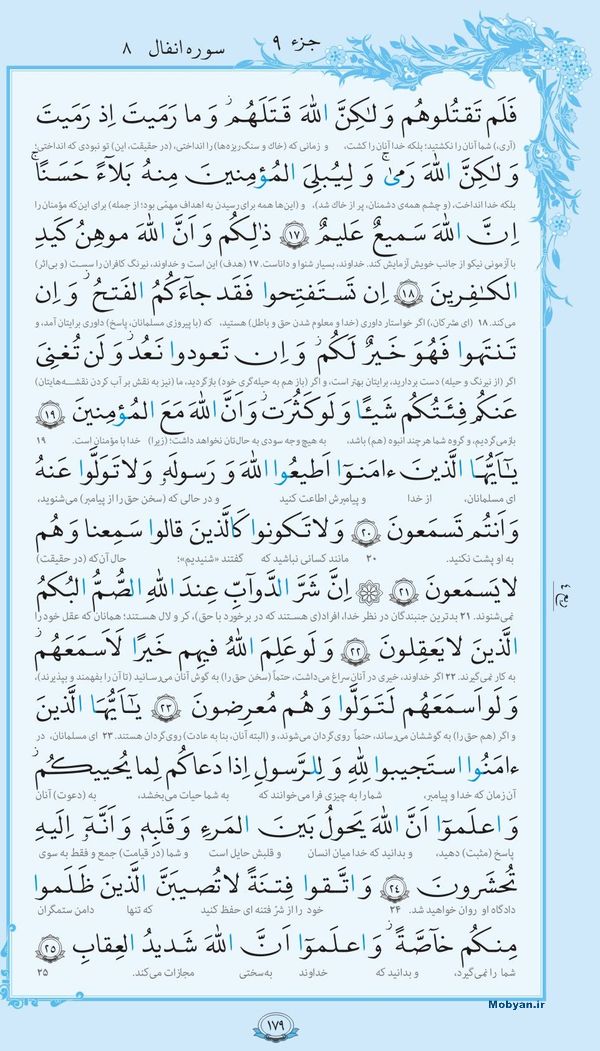 جزء ۹ سوره انفال ۸
فَلَم تَقتُلوهُم وَلٰكِنَّ اللهَ قَتَلَهُم ۚ وَما رَمَيتَ اِذ رَمَيتَ
(آری،) شما آنان را نکشتید؛ بلکه خدا آنان را کشت، و زمانی که (خاک و سنگ‌ریزه‌ها) را انداختی، (در حقیقت، این) تو نبودی که انداختی؛
وَلٰكِنَّ اللهَ رَمىٰ ۚ وَلِيُبلِىَ المُؤمِنينَ مِنهُ بَلآءً حَسَنًا ۚ
بلکه خدا انداخت، (و چشم همه‌ی دشمنان، پر از خاک شد)، و (این‌ها همه برای رسیدن به اهداف مهمّی بود؛ از جمله) برای این‌که مؤمنان را
اِنَّ اللهَ سَميعٌ عَليمٌ ۱۷ ذٰلِكُم وَاَنَّ اللهَ موهِنُ كَيدِ
با آزمونی نیکو از جانب خویش آزمایش کند. خداوند، بسیار شنوا و داناست. ۱۷ (هدف) این است و خداوند، نیرنگ کافران را سست (و بی‌اثر)
الكٰفِرينَ ۱۸ اِن تَستَفتِحوا فَقَد جآءَكُمُ الفَتحُ ۖ وَاِن
می‌کند. ۱۸ (ای مشرکان،) اگر خواستار داوری (خدا و معلوم شدن حق و باطل) هستید، که (با پیروزی مسلمانان، پاسخ) داوری برایتان آمد، و
تَنتَهوا فَهُوَ خَيرٌ لَكُم ۖ وَاِن تَعودوا نَعُد وَلَن تُغنِىَ
اگر (از نیرنگ و حیله) دست بردارید، برایتان بهتر است، و اگر (باز هم به حیله‌گری خود) بازگردید، ما (نیز به نقش بر آب کردن نقشه‌هایتان)
عَنكُم فِئَتُكُم شَيئًا وَلَو كَثُرَت وَاَنَّ اللهَ مَعَ المُؤمِنينَ ۱۹
بازمی‌گردیم، و گروه شما هرچند انبوه (هم) باشد، به هیچ وجه سودی به حال‌تان نخواهد داشت؛ (زیرا) خدا با مؤمنان است. ۱۹
يٰٓاَيُّهَا الَّذينَ ءامَنوٓا اَطيعُوا اللهَ وَرَسولَهٗ وَلاتَوَلَّوا عَنهُ
ای مسلمانان، از خدا و پیامبرش اطاعت کنید و در حالی که (سخن حق را از پیامبر) می‌شنوید،
وَاَنتُم تَسمَعونَ ۲۰ وَلاتَكونوا كَالَّذينَ قالوا سَمِعنا وَهُم
به او پشت نکنید. ۲۰ مانند کسانی نباشید که گفتند «شنیدیم»؛ حال آن‌که (در حقیقت)
لايَسمَعونَ ۲۱ اِنَّ شَرَّ الدَّوآبِّ عِندَ اللهِ الصُّمُّ البُكمُ
نمی‌شنوند. ۲۱ بدترین جنبندگان در نظر خدا، افراد(ی هستند که در برخورد با حق)، کر و لال هستند؛ همانان که عقل خود را
الَّذينَ لايَعقِلونَ ۲۲ وَلَو عَلِمَ اللهُ فيهِم خَيرًا لَاَسمَعَهُم ۖ
به کار نمی‌گیرند. ۲۲ اگر خداوند، خیری در آنان سراغ می‌داشت، حتماً (سخن حق را) به گوش آنان می‌رسانید (تا آن را بفهمند و بپذیرند)،
وَلَو اَسمَعَهُم لَتَوَلَّوا وَهُم مُعرِضونَ ۲۳ يٰٓاَيُّهَا الَّذينَ
و اگر (هم حق را) به گوششان می‌رساند، حتماً روی‌گردان می‌شوند، و (البته آنان، بنا به عادت) روی‌گردان هستند. ۲۳ ای مسلمانان، در
ءامَنُوا استَجيبوا لِلّٰهِ وَلِلرَّسولِ اِذا دَعاكُم لِما يُحييكُم ۖ
آن زمان که خدا و پیامبر، شما را به چیزی فرا می‌خوانند که به شما حیات می‌بخشد، به (دعوت) آنان
وَاعلَموٓا اَنَّ اللهَ يَحولُ بَينَ المَرءِ وَقَلبِهٖ وَاَنَّهٗٓ اِلَيهِ
پاسخ (مثبت) دهید، و بدانید که خدا میان انسان و قلبش حایل است و شما (در قیامت) جمع و فقط به سوی
تُحشَرونَ ۲۴ وَاتَّقوا فِتنَةً لاتُصيبَنَّ الَّذينَ ظَلَموا
دادگاه او روان خواهید شد. ۲۴ خود را از شرّ فتنه ای حفظ کنید که تنها دامن ستمگران
مِنكُم خآصَّةً ۖ وَاعلَموٓا اَنَّ اللهَ شَديدُ العِقابِ ۲۵
شما را نمی‌گیرد، و بدانید که خداوند به‌سختی مجازات می‌کند. ۲۵
۱۷۹
Mobyan.ir